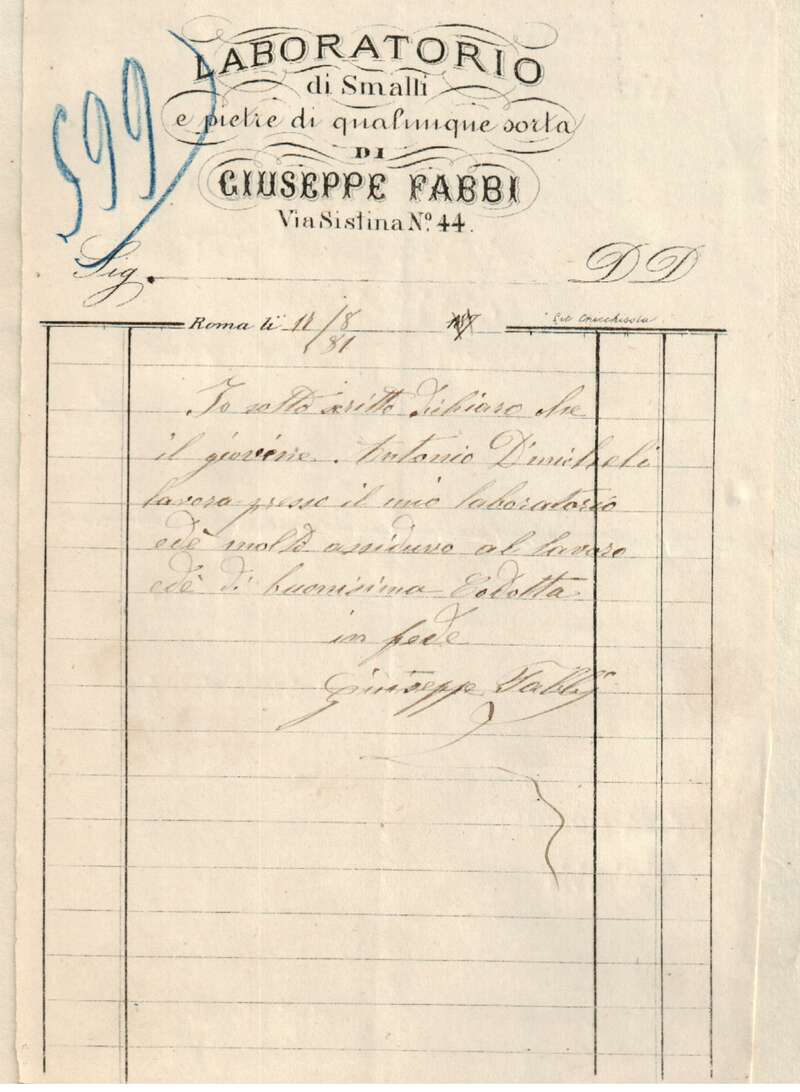 LABORATORIO
di Smalti
e pietre di qualunque sorta
DI
GIUSEPPE FABBI
Via Sistina Nº. 44.
599
Sig. DD
Roma li 11/8
81
Io sotto scritto dichiaro che
il giovine Antonio D'micheli
lavora presso il mio laboratorio
edè molto assiduvo al lavoro
edè di buonisima Codotta
in fede
Giuseppe Fabbi